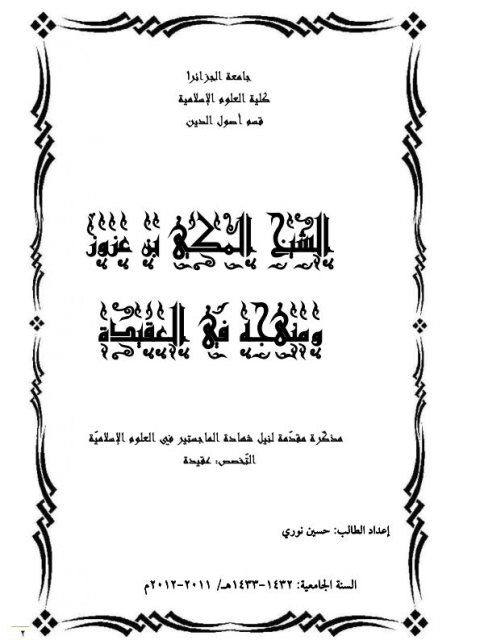 جامعة الجزائر1
كلية العلوم الإسلامية
قسم أصول الدين
الشيخ المكي بن عزوز
ومنهجه في العقيدة
مذكّرة مقدّمة لنيل شهادة الماجستير في العلوم الإسلاميّة
التّخصص: عقيدة
إعداد الطالب: حسين نوري
السنة الجامعية: ١٤٣٢-١٤٣٣هـ/ ٢٠١١-٢٠١٢م
٢